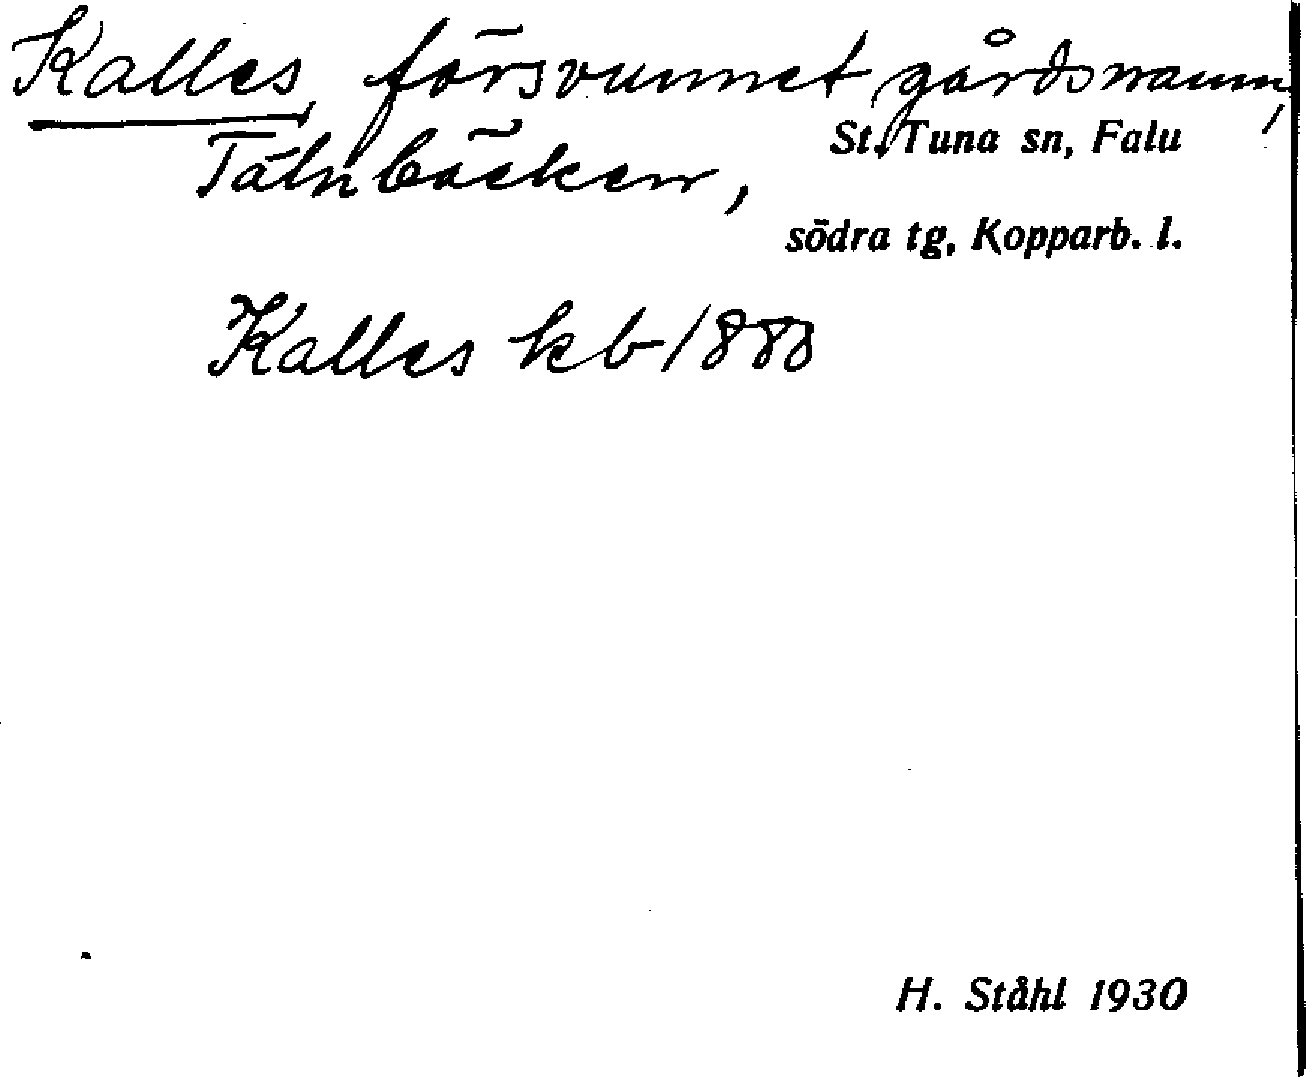 Kalles, försvunnet gårdsnamn,
St. Tuna sn, Falu
Tälnbäcken,
södra tg, Kopparb. l.
Kalles kb 1880
H. Ståhl 1930